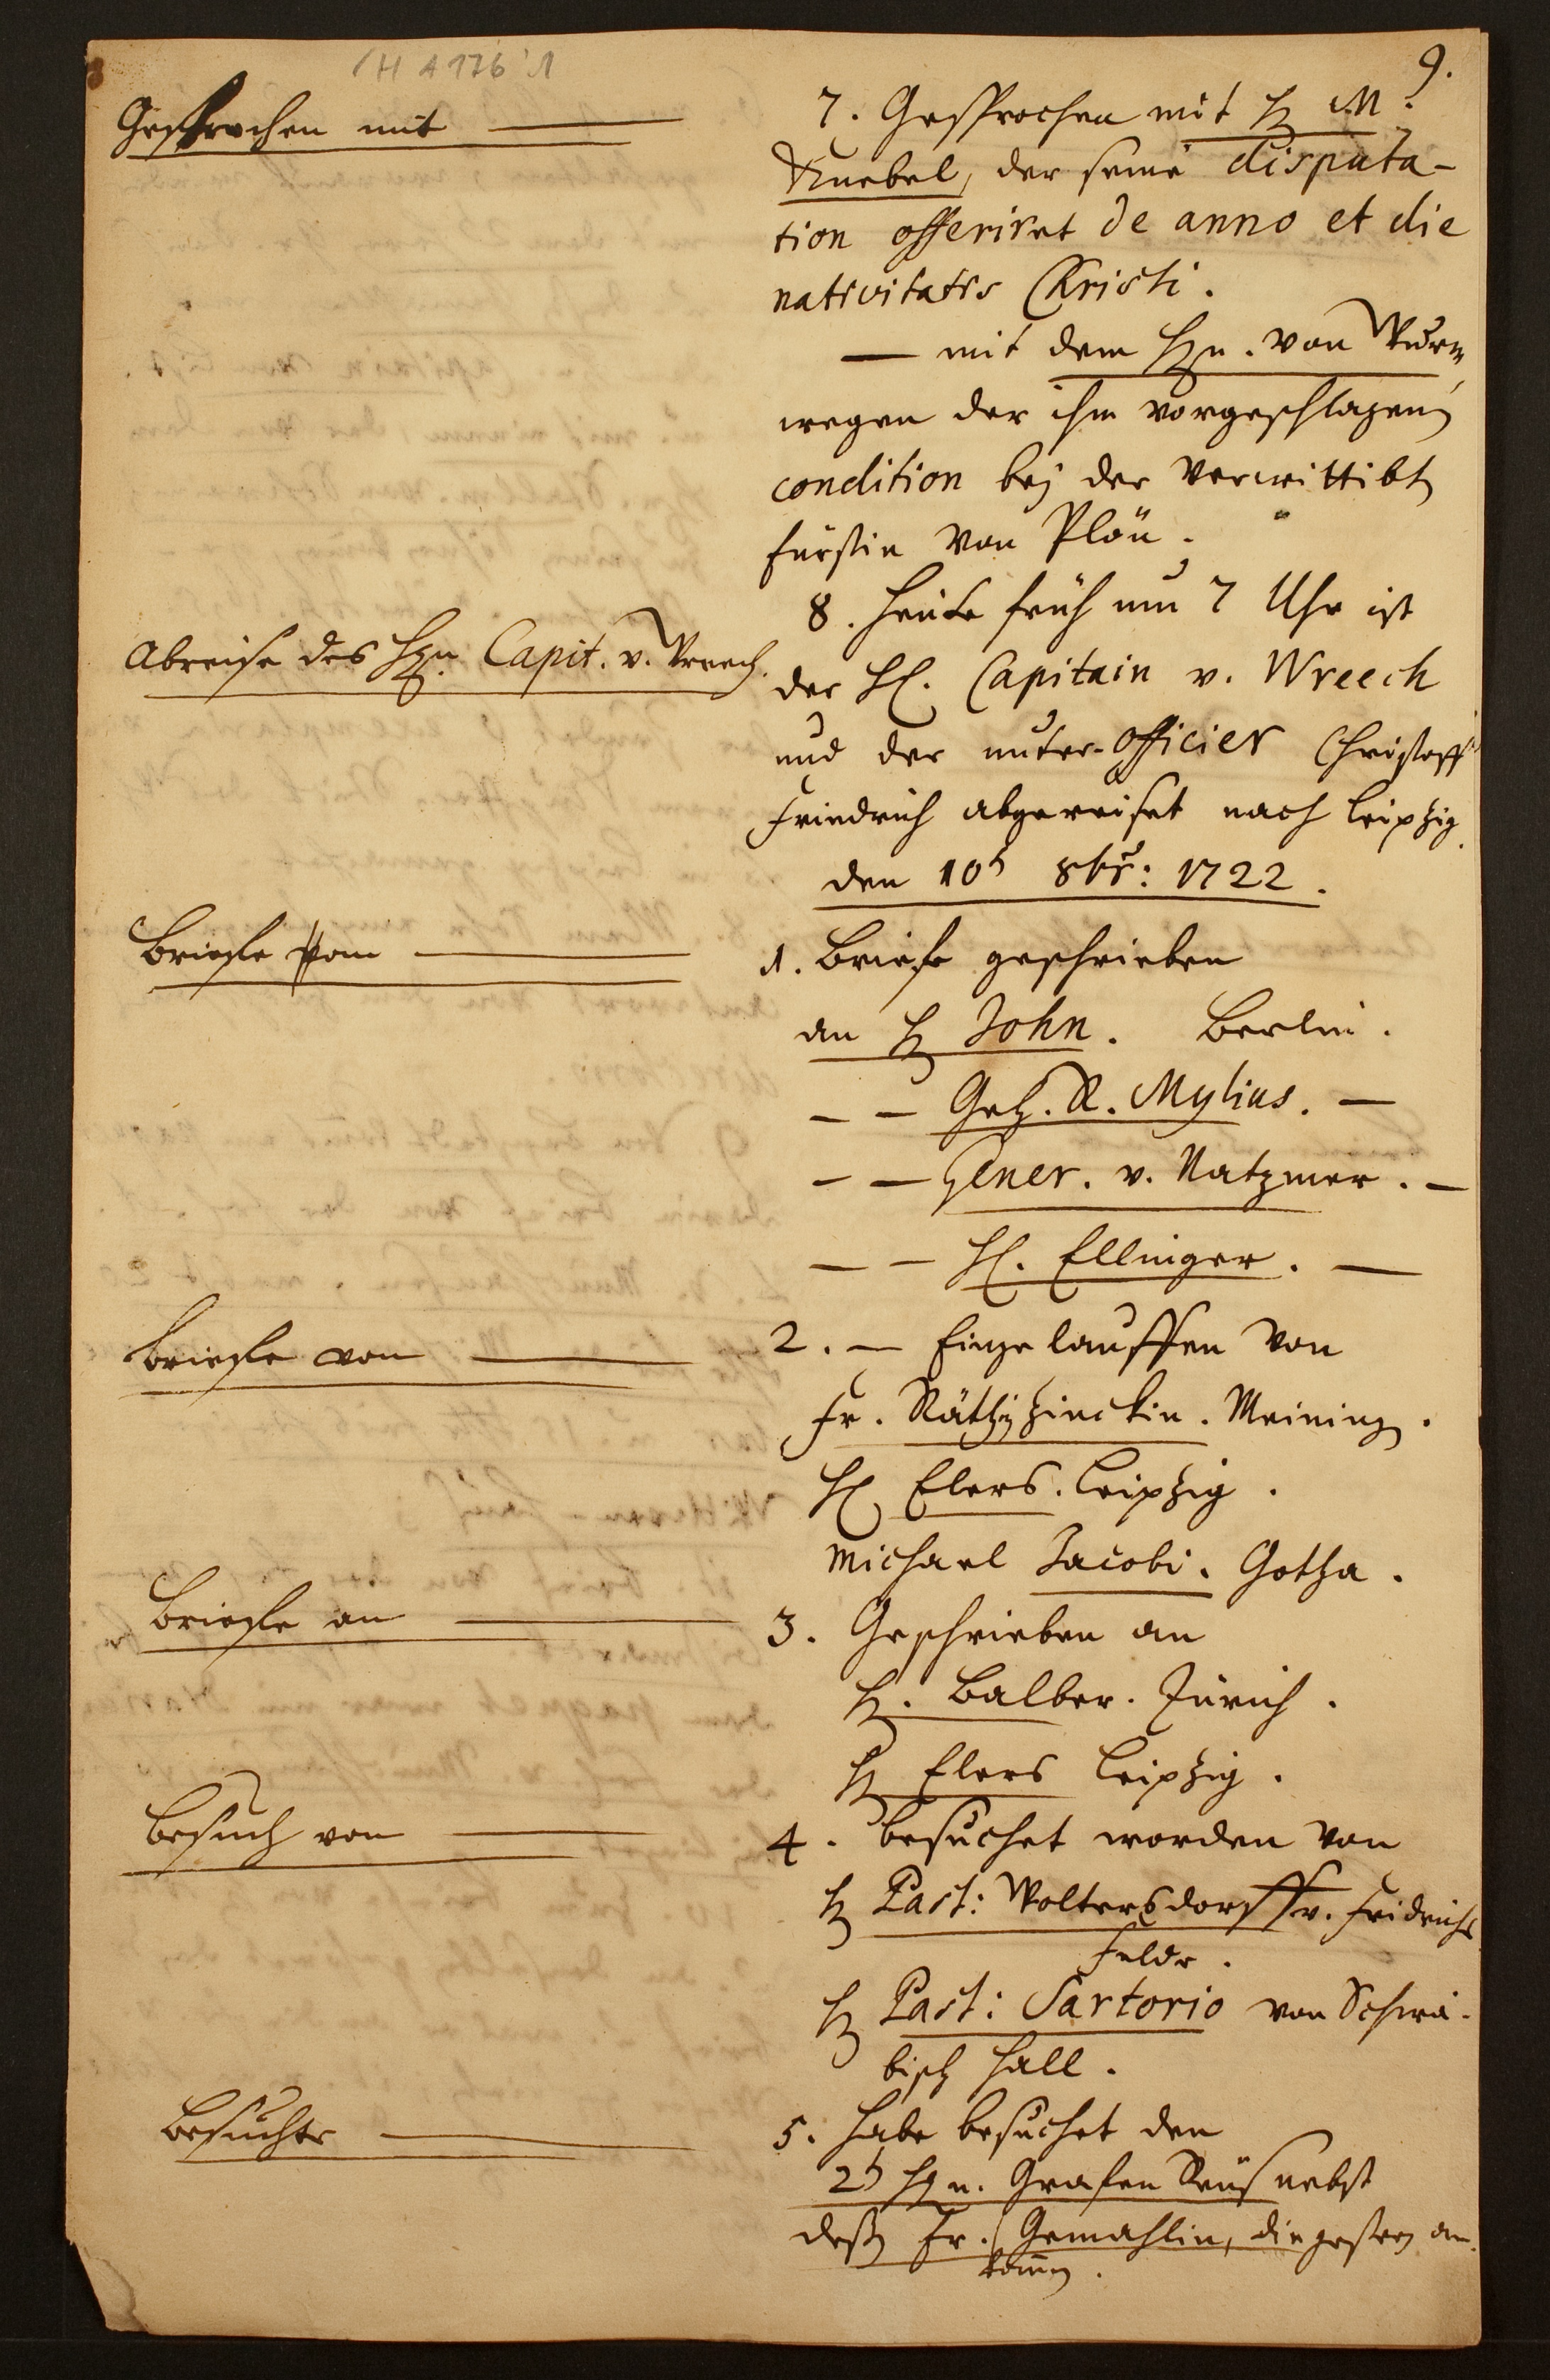 H A 176 : 1
9.
Gesprochen mit ———
7. Gesprochen mit H M.
Knebel, der seine disputa-
tion offeriret de anno et die
nativitatis Christi.
— mit dem Hrn. von Wurm,
wegen der ihm vorgeschlagenen
condition bej der verwittibten
Fürstin von Plön.
Abreise des Hrn. Capit. v. Wreech.
8. Heute früh um 7 Uhr ist
der H. Capitain v. Wreech
und der unter-officier Christoff
Friedrich abgereiset nach Leipzig.
den 10ten 8br: 1722.
Briefe vom ———
1. Briefe geschrieben
an H John. Berlin.
— — Geh. R. Mylius. —
— — Gener. v. Natzmer. —
— — H. Ellinger. —
Briefe von ———
2. — Eingelauffen von
Fr. Räthin Zinckin. Meining.
H Elers. Leipzig.
Michael Jacobi. Gotha.
Briefe an ———
3. Geschrieben an
H. Balber. Zürich.
H Elers Leipzig.
Besuch von ———
4. besuchet worden von
H Past: Woltersdorff v. Fridrichs
felde.
H Past: Sartorio von Schwä-
bisch Hall.
Besuchte ———
5. Habe besuchet den
2ten Hrn. Grafen Reuß nebst
deßen Fr. Gemahlin, die gestern an-
kommen.